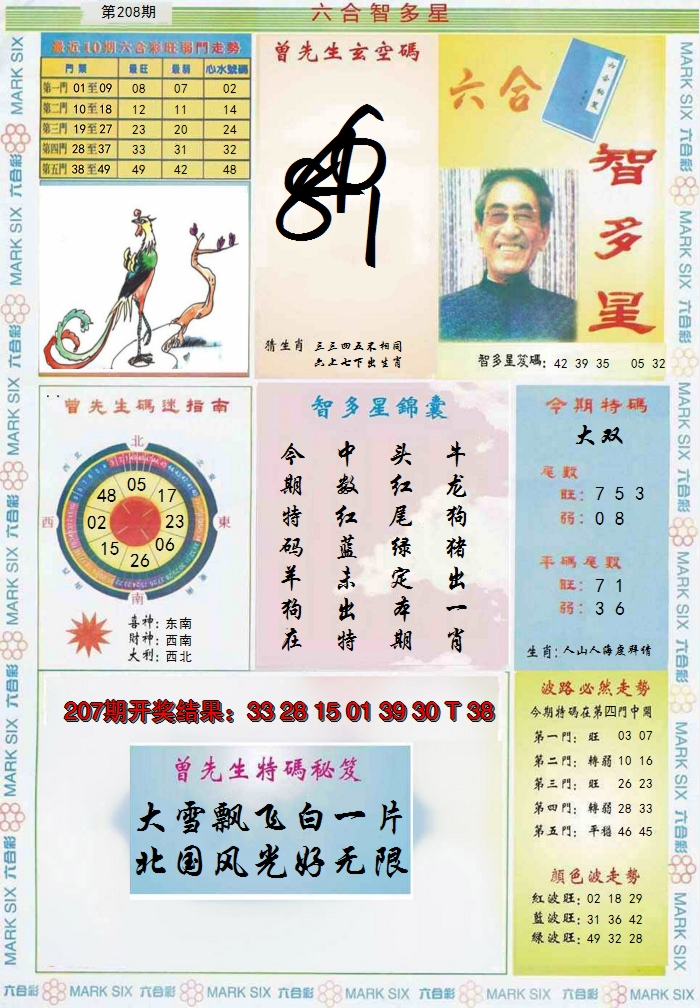 第208期
六合智多星
最近10期六合彩旺弱門走勢
門類 最旺 最弱 心水號碼
第一門 01至09 08 07 02
第二門 10至18 12 11 14
第三門 19至27 23 20 24
第四門 28至37 33 31 32
第五門 38至49 49 42 48
曾先生玄空碼
猜生肖 三三四五不相同
六七七下出生肖
六合
智多星
智多星笈碼: 42 39 35 05 32
曾先生碼迷指南
北
西北 東北
05
48 17
西 02 23 東
15 06
26
南
喜神: 东南
財神: 西南
大利: 西北
智多星錦囊
今期特码羊狗在
中数红蓝未出特
头红尾绿定本期
牛龙狗猪出一肖
今期特碼
大双
尾數
旺: 7 5 3
弱: 0 8
平碼尾數
旺: 7 1
弱: 3 6
生肖: 人山人海度拜倩
207期开奖结果: 33 28 15 01 39 30 T 38
曾先生特碼秘笈
大雪飘飞白一片
北国风光好无限
波路必然走勢
今期特碼在第四門中開
第一門: 旺 03 07
第二門: 轉弱 10 16
第三門: 旺 26 23
第四門: 轉弱 28 33
第五門: 平穩 46 45
顏色波走勢
紅波旺: 02 18 29
藍波旺: 31 36 42
綠波旺: 49 32 28
MARK SIX 六合彩 MARK SIX 六合彩 MARK SIX 六合彩 MARK SIX 六合彩 MARK SIX 六合彩